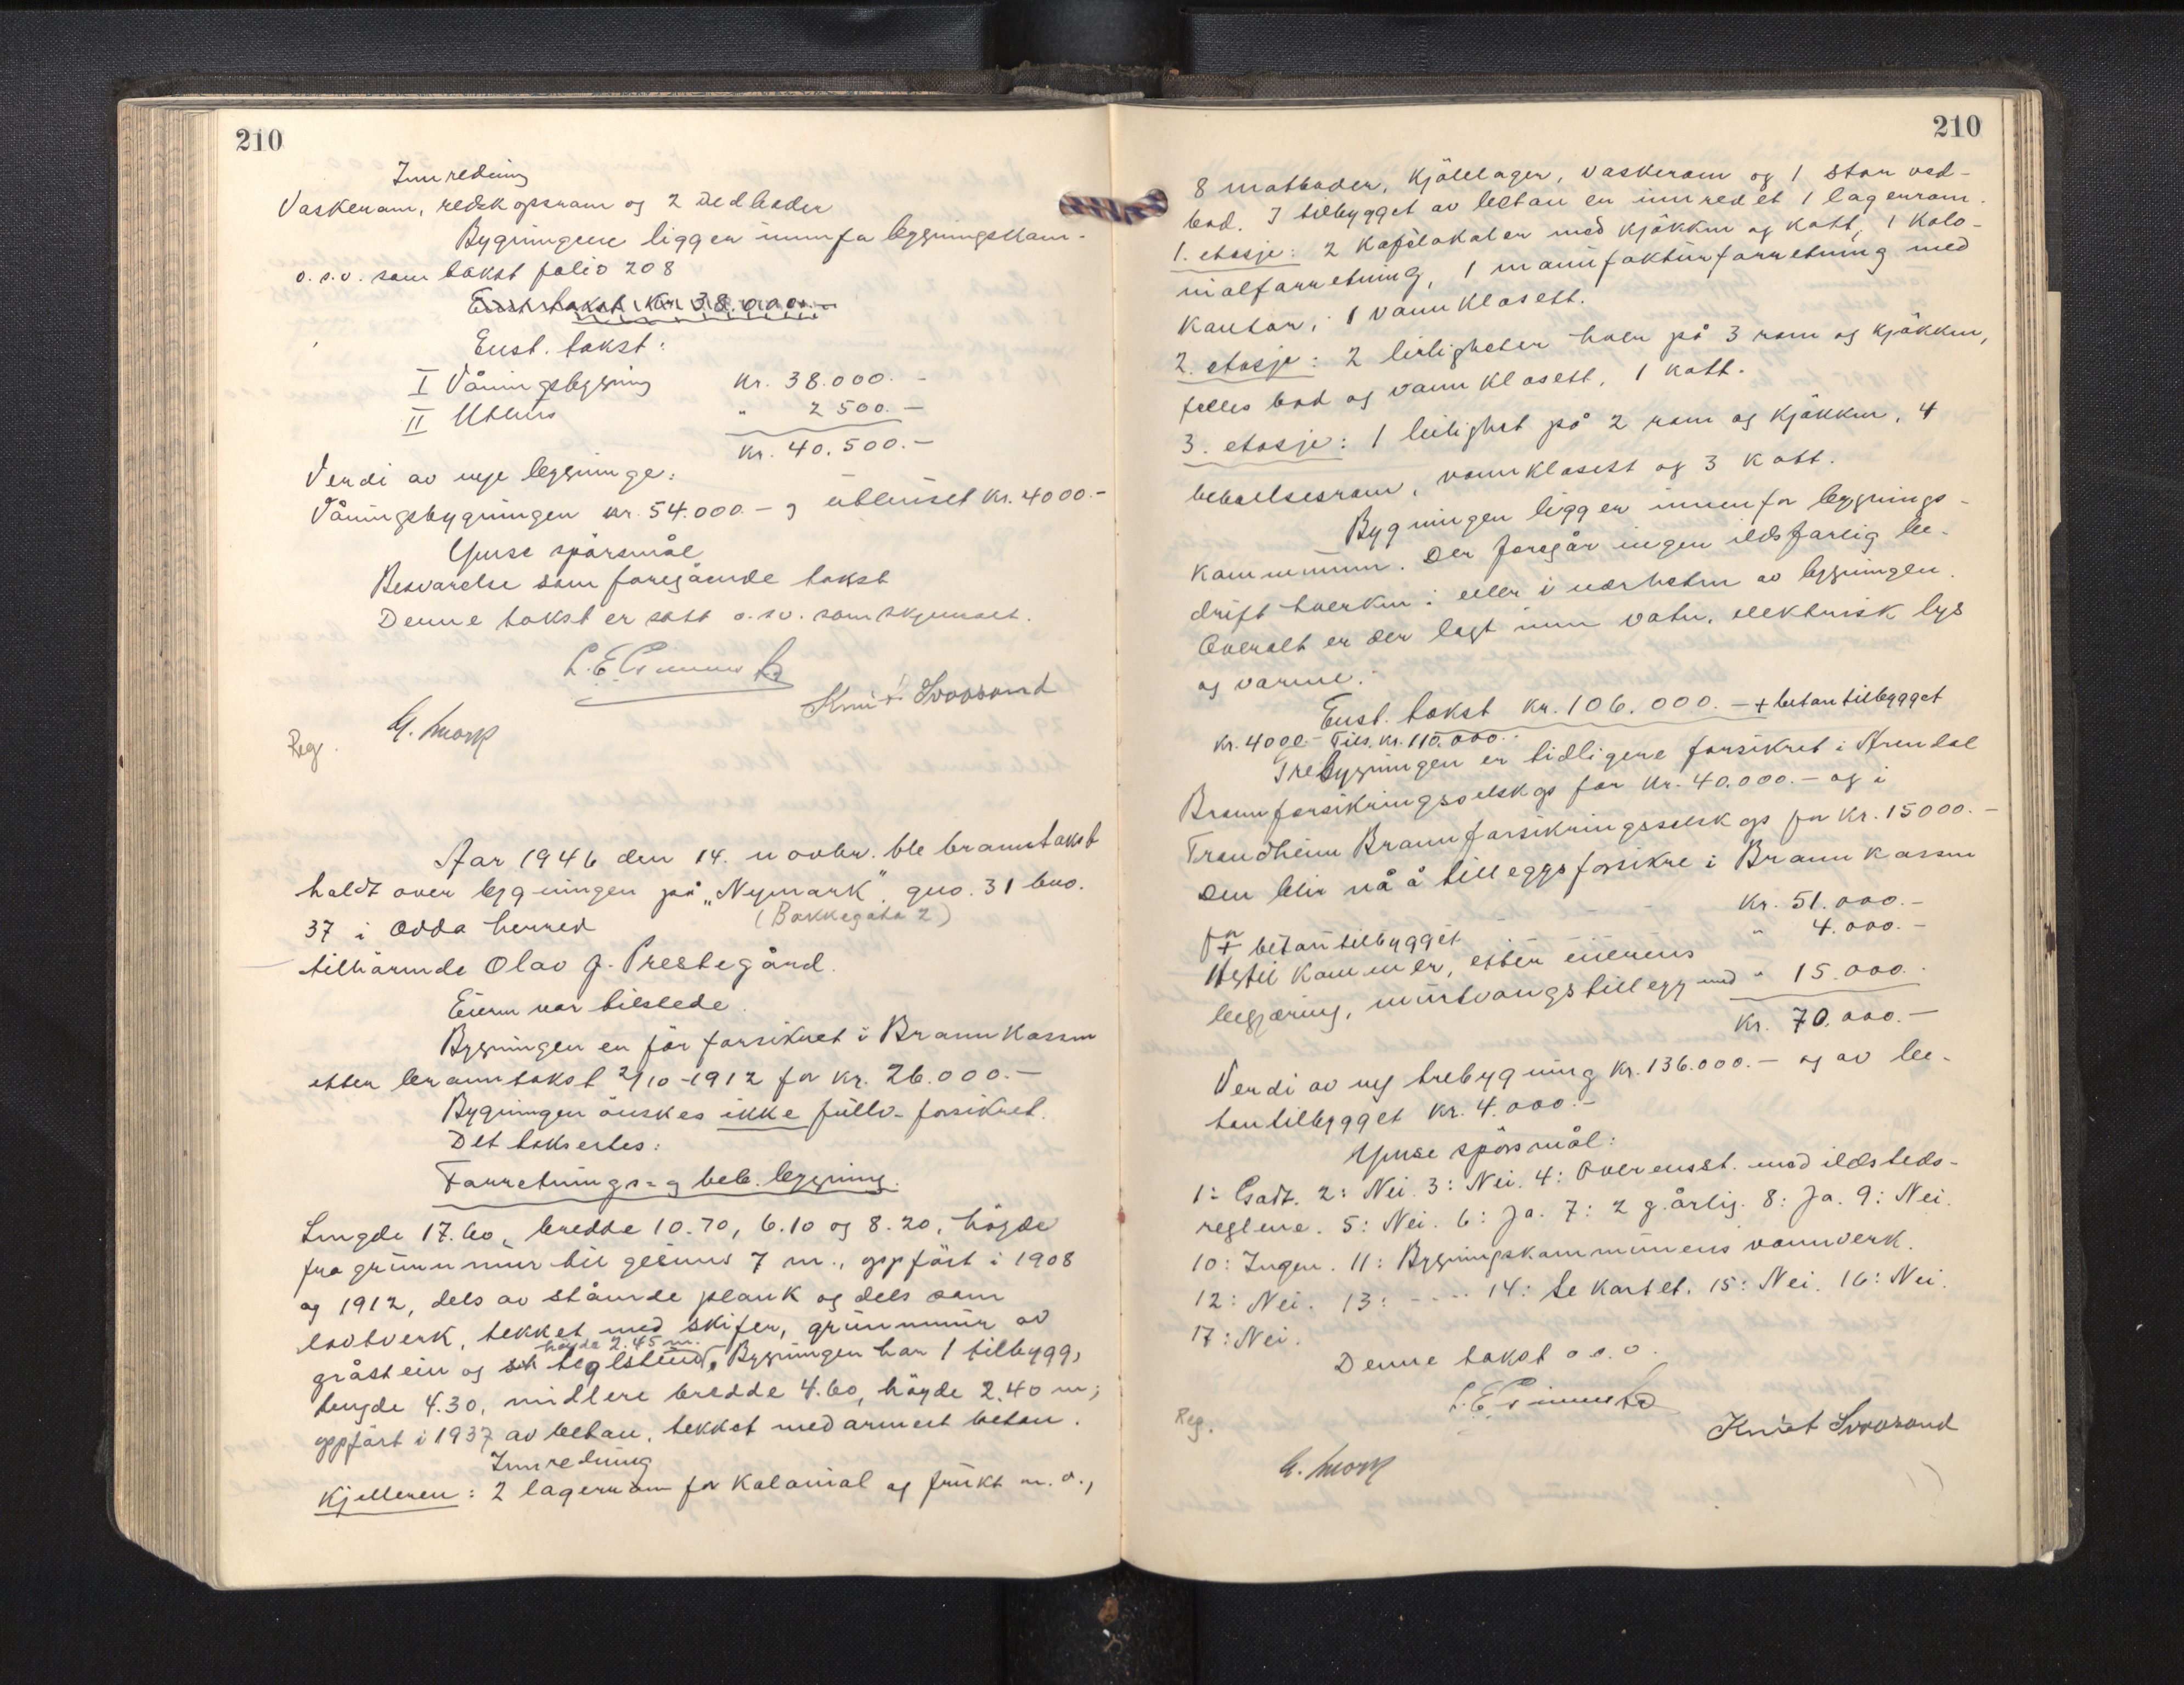 210
Innredning
Vaskerom, redskapsrom og 2 vedboder
Bygningene ligger innenfor bygningskom-
o.s.v. som takst folio 208
Enst. takst kr. 38.000.-
Enst. takst:
I Våningsbygning kr. 38.000.-
II Uthus " 2 500.-
kr. 40.500.-
Verdi av nye bygninge:
Våningsbygningen kr. 54.000.- og uthuset kr. 4000.-
Ymse spörsmål
Besvarelse som foregående takst
Denne takst er satt o.s.v. som skjönnet.
Knut Svoosand
Reg. G. Mork
Aar 1946 den 14. novbr. ble branntakst
holdt over bygningen på „Nymark" gno. 31 bno.
37 i Odda herred (Bakkegata 2)
tilhörende Olav J. Prestegård.
Eieren var tilstede.
Bygningen er för forsikret i Brannkassen
etter branntakst 2/10-1912 for kr. 26.000.-
Bygningen önskes ikke fullv. forsikret.
Det takseres:
Forretnings- og beb. bygning.
Lengde 17.60, bredde 10.70, 6.10 og 8.20, höyde
fra grunnmur til gesims 7 m., oppfört i 1908
og 1912, dels av stående plank og dels som
lovtverk, tekket med skifer, grunnmur av
höyde 2.45 m.
gråstein og teglstein, Bygningen har 1 tilbygg,
lengde 4.30, midlere bredde 4.60, höyde 2.40 m;
oppfört i 1937 av betong, tekket med armert betong.
Innredning
Kjelleren: 2 lagerrom for kolonial og frukt m.v.,
210
8 matboder, kjölelager, vaskerom og 1 stor ved-
bod. I tilbygget av betong er innredet 1 lagerrom.
1. etasje: 2 kafélokaler med kjökken og kott, 1 kolo-
nialforretning, 1 manufakturforretning med
kontor, 1 vannklosett.
2. etasje: 2 leiligheter hver på 3 rom og kjökken,
felles bad og vannklosett, 1 kott.
3. etasje: 1 leilighet på 2 rom og kjökken, 4
beboelsesrom, vannklosett og 3 kott.
Bygningen ligger innenfor bygnings-
kommunen. Der foregår ingen ildsfarlig be-
drift hverken i eller i nærheten av bygningen.
Overalt er der lagt inn vatn, elektrisk lys
og varme.
Enst. takst kr. 106.000.- + betontilbygget
kr. 4000.- Tils. kr. 110.000.-
Trebygningen er tidligere forsikret i Arendal
Brannforsikringsselskap for kr. 40.000.- og i
Trondheim Brannforsikringsselskap for kr. 15000.-
Den blir nå å tilleggsforsikre i Brannkassen
for kr. 51.000.-
+ betontilbygget " 4.000.-
Hertil kommer, etter eierens
begjæring, murtvangstillegg med " 15.000.-
kr. 70.000.-
Verdi av ny trebygning kr. 136.000.- og av be-
tontilbygget kr. 4.000.-
Ymse spörsmål:
1: Godt. 2: Nei. 3: Nei. 4: Overensst. med ildsteds-
reglene. 5: Nei. 6: Ja. 7: 2 g. årlig. 8: Ja. 9: Nei.
10: Ingen. 11: Bygningskommunens vannverk.
12: Nei. 13: - - - - 14: Se kartet. 15: Nei. 16: Nei.
17: Nei.
Denne takst o.s.v.
Reg. Knut Svoosand
G. Mork